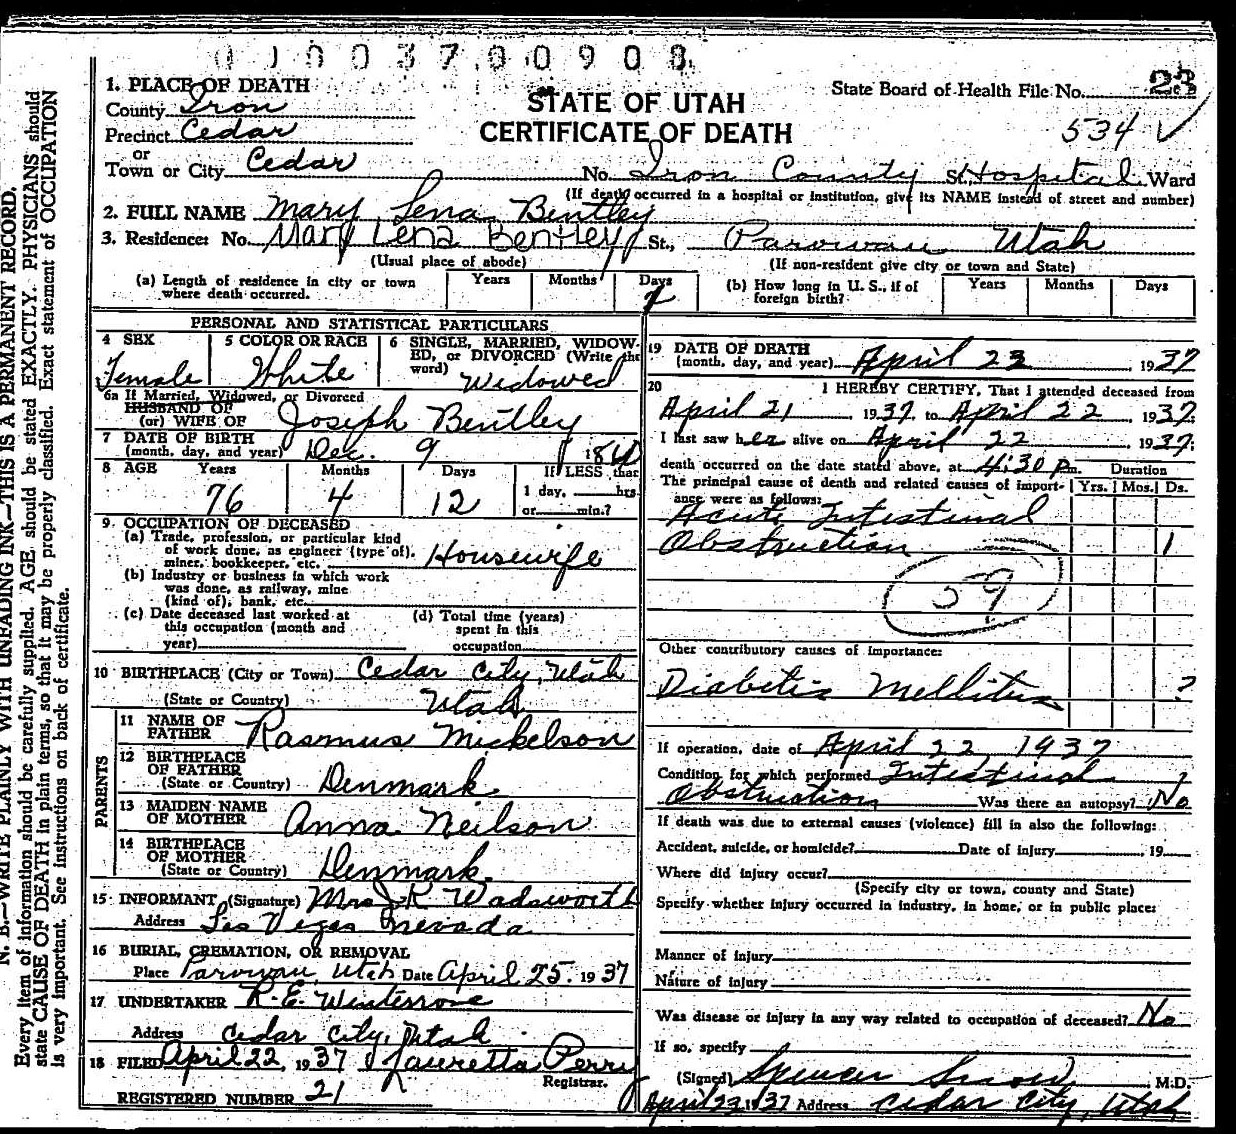 0 1 0 0 3 7 0 0 9 0 8
1. PLACE OF DEATH
County Iron
Precinct Cedar
or
Town or City Cedar
STATE OF UTAH
CERTIFICATE OF DEATH
State Board of Health File No. 23
534 ✓
No. Iron County St. Hospital Ward
(If death occurred in a hospital or institution, give its NAME instead of street and number)
2. FULL NAME Mary Lena Bentley
3. Residence: No. Mary Lena Bentley St., Parowan Utah
(Usual place of abode) (If non-resident give city or town and State)
(a) Length of residence in city or town where death occurred. Years Months Days 2
(b) How long in U. S., if of foreign birth? Years Months Days
PERSONAL AND STATISTICAL PARTICULARS
4 SEX Female
5 COLOR OR RACE White
6 SINGLE, MARRIED, WIDOWED, or DIVORCED (Write the word) Widowed
6a If Married, Widowed, or Divorced
HUSBAND OF
(or) WIFE OF Joseph Bentley
7 DATE OF BIRTH
(month, day, and year) Dec. 9 1860
8 AGE Years 76 Months 4 Days 12 If LESS than 1 day, hrs. or min.?
9 OCCUPATION OF DECEASED
(a) Trade, profession, or particular kind of work done, as engineer (type of), miner, bookkeeper, etc. Housewife
(b) Industry or business in which work was done, as railway, mine (kind of), bank, etc.
(c) Date deceased last worked at this occupation (month and year)
(d) Total time (years) spent in this occupation
10 BIRTHPLACE (City or Town) Cedar City, Utah
(State or Country) Utah
PARENTS
11 NAME OF FATHER Rasmus Mickelson
12 BIRTHPLACE OF FATHER
(State or Country) Denmark
13 MAIDEN NAME OF MOTHER Anna Neilson
14 BIRTHPLACE OF MOTHER
(State or Country) Denmark
15 INFORMANT (Signature) Mrs J K Wadsworth
Address Las Vegas Nevada
16 BURIAL, CREMATION, OR REMOVAL
Place Parowan, Utah Date April 25. 1937
17 UNDERTAKER
Address Cedar City, Utah
18 FILED April 22, 1937 Lauretta Perry
Registrar.
REGISTERED NUMBER 21
19 DATE OF DEATH
(month, day, and year) April 23 1937
20 I HEREBY CERTIFY, That I attended deceased from
April 21 1937, to April 22 1937
I last saw her alive on April 22 1937
death occurred on the date stated above, at 4:30 Pm. Duration
The principal cause of death and related causes of importance were as follows: Yrs. Mos. Ds.
Acute Intestinal
Obstruction 1
59
Other contributory causes of importance:
Diabetis Mellitus ?
If operation, date of April 22, 1937
Condition for which performed Intestinal
Obstruction Was there an autopsy? No
If death was due to external causes (violence) fill in also the following:
Accident, suicide, or homicide? Date of injury 19
Where did injury occur?
(Specify city or town, county and State)
Specify whether injury occurred in industry, in home, or in public place:
Manner of injury
Nature of injury
Was disease or injury in any way related to occupation of deceased? No
If so, specify
(Signed) Spencer Snow M.D.
April 23 1937 Address Cedar City, Utah
N. B.—WRITE PLAINLY WITH UNFADING INK—THIS IS A PERMANENT RECORD.
Every item of information should be carefully supplied. AGE should be stated EXACTLY. PHYSICIANS should
state CAUSE OF DEATH in plain terms, so that it may be properly classified. Exact statement of OCCUPATION
is very important. See instructions on back of certificate.